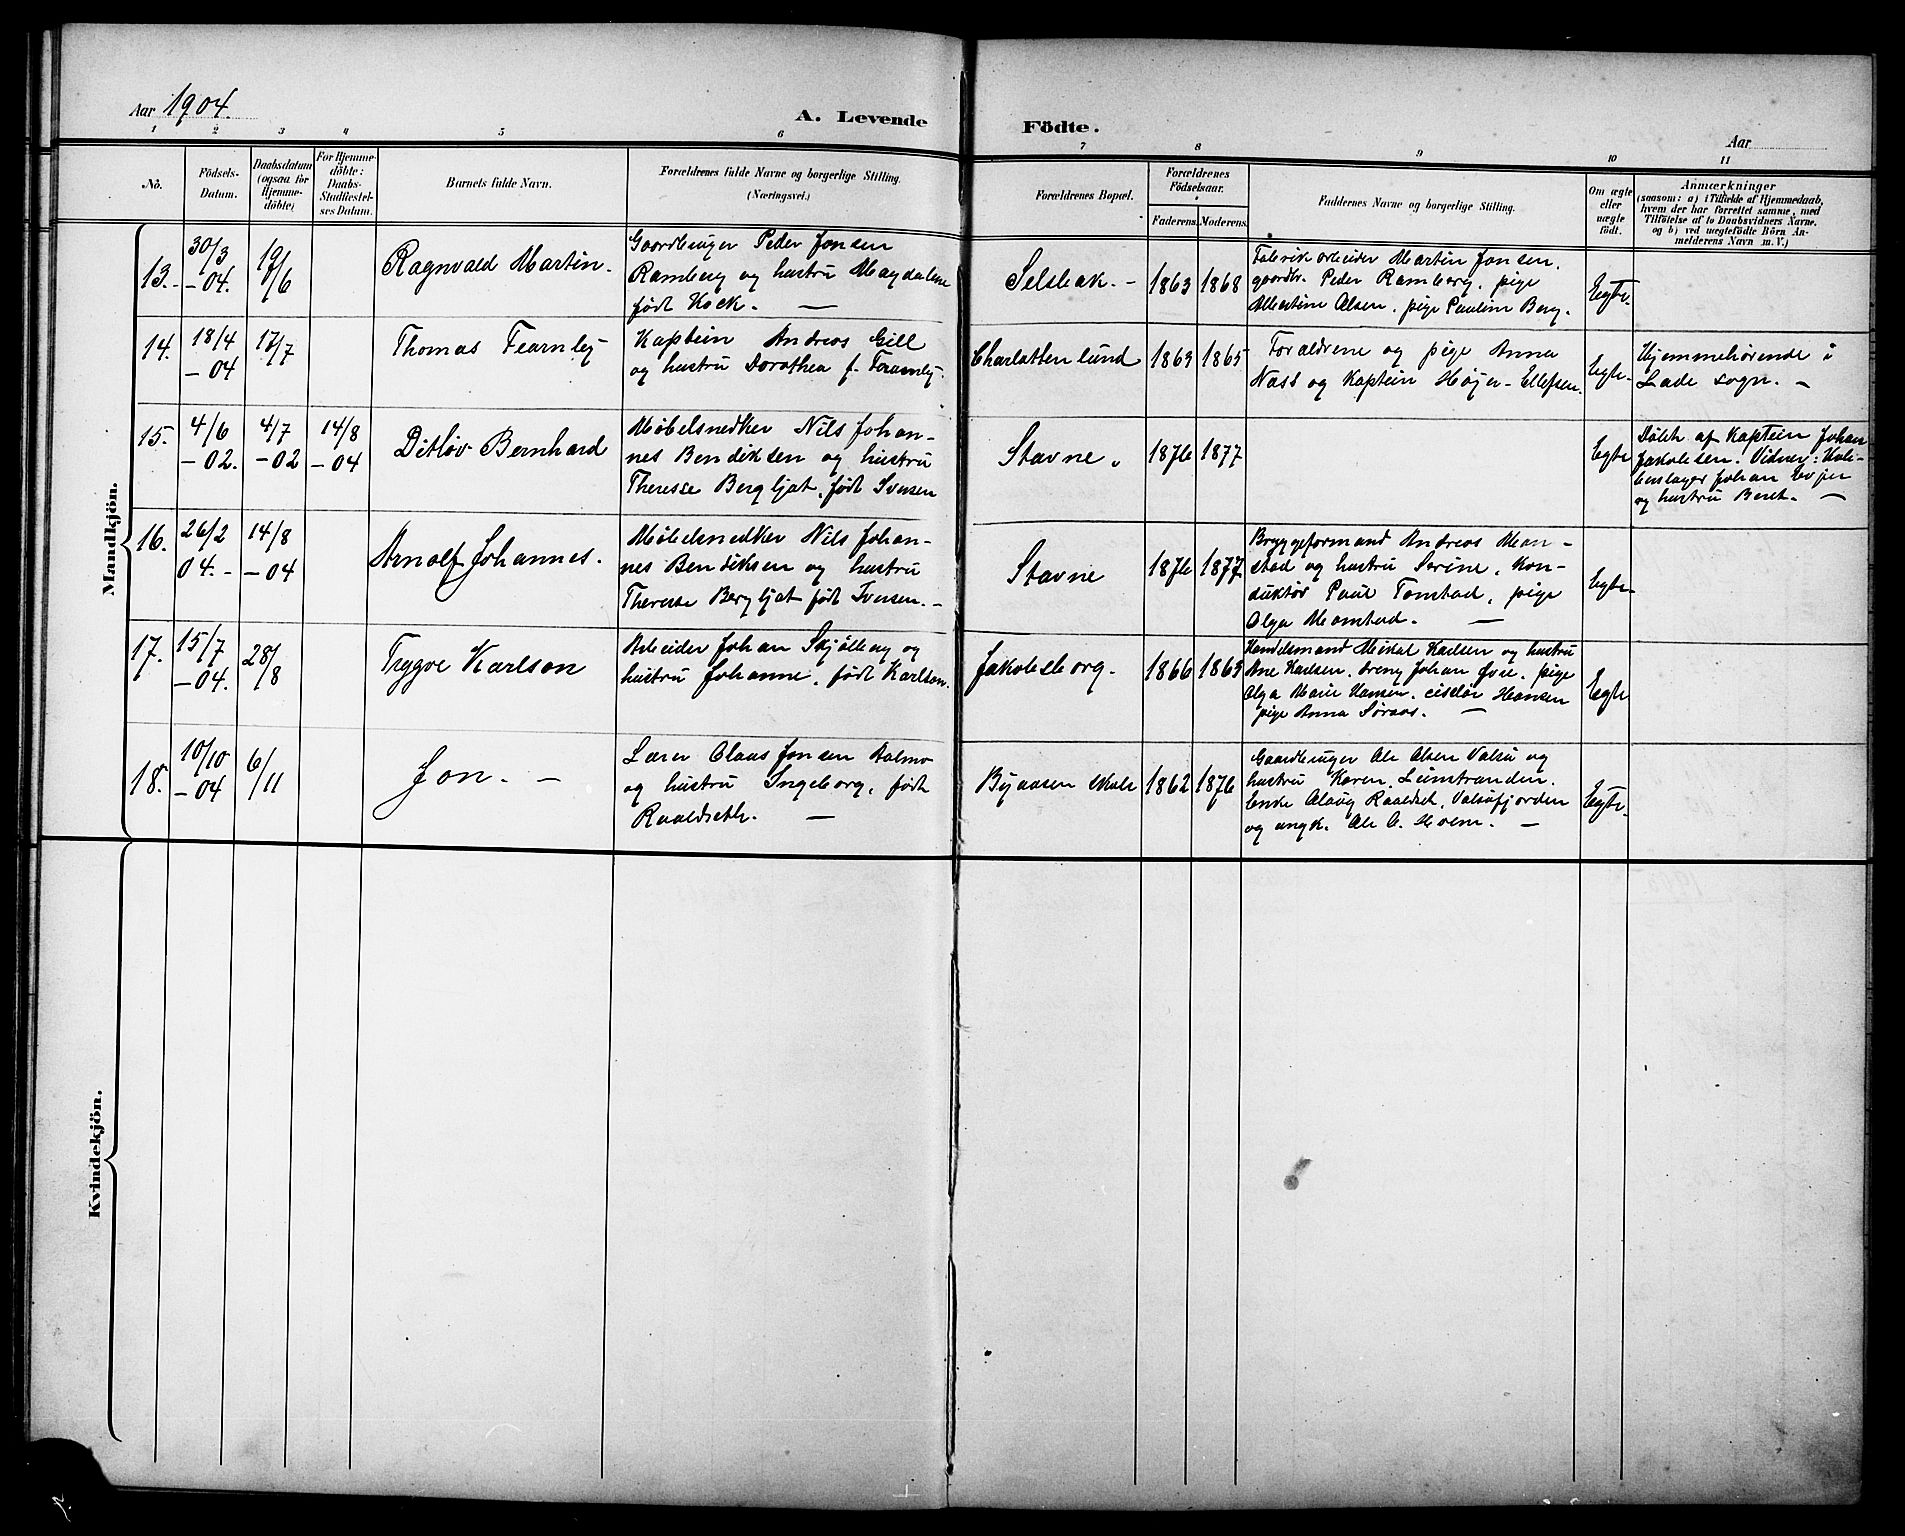 Aar 1904.
A. Levende Födte.
Aar
1 2 3 4 5 6 7 8 9 10 11
No.
Födsels-
Datum.
Daabsdatum
(ogsaa for
Hjemme-
döbte)
For Hjemme-
döbte:
Daabs-
Stadfæstel-
ses Datum.
Barnets fulde Navn.
Forældrenes fulde Navne og borgerlige Stilling.
(Næringsvei.)
Forældrenes Bopæl.
Forældrenes
Födselsaar.
Faderens. Moderens.
Faddernes Navne og borgerlige Stilling.
Om ægte
eller
uægte
födt.
Anmærkninger
(saasom: a) i Tilfælde af Hjemmedaab,
hvem der har forrettet samme, med
Tilföielse af to Daabsvidners Navne.
og b) ved uægtefödte Börn An-
melderens Navn m. V.)
Mandkjön.
13.
30/3
- 04.
19/6
Ragnvald Martin.
Gaardbruger Peder Jonsen
Ramberg og hustru Magdalene
født Kock. —
Selsbak. -
1863 1868
Fabrikarbeider Martin Jonsen,
gaardbr. Peder Ramberg, pige
Albertine Olsen, pige Pauline Berg.
Egte.
14.
18/4
- 04
17/7
Thomas Fearnley
Kaptein Andreas Gill
og hustru Dorothea f. Fearnley.
Charlottenlund
1863 1865
Forældrene og pige Anna
Næss og Kaptein Højer-Ellefsen.
Egte.
Hjemmehørende i
Lade sogn. -
15.
4/6
- 02.
4/7
- 02
14/8
- 04
Ditløv Bernhard
Møbelsnedker Nils Johan-
nes Bendiksen og hustru
Theresse Bergljot, født Iversen
Stavne.
1876 1877
Egte
Døbt af Kaptein Johan
Jakobsen. Vidner:
Johan
og hustru Beret. —
16.
26/2
04. -
14/8
- 04
Arnolf Johannes.
Møbelsnedker Nils Johan-
nes Bendiksen og hustru
Theresse Bergljot født Iversen. -
Stavne
1876 1877
Bryggeformand Andreas Mon-
stad og hustru Serine, Kon-
duktør Paul Tomstad, pige
Olga Monstad. —
Egte.
17.
15/7
- 04.
28/8
Trygve Karlson
Arbeider Johan Skjølberg og
hustru Johanne, født Karlson.
Jakobsborg.
1866 1863
Handelsmand Mikal Karlsen og hustru
Ane Karlsen, dreng Johan, pige
Olga Marie Hansen, ciselør Hansen
pige Anna Søraas. —
Egte
18.
10/10
- 04
6/11
Jon. —
Lærer Claas Jonsen Aalmo
og hustru Ingeborg, født
Raaldseth. —
Byaasen skole
1862 1876
Gaardbruger Ole Olsen Valsø og
hustru Karen,
Enke Olaug Raaldset, Valsøfjorden
og ungk. Ole O. Holm. —
Egte.
Kvindekjön.